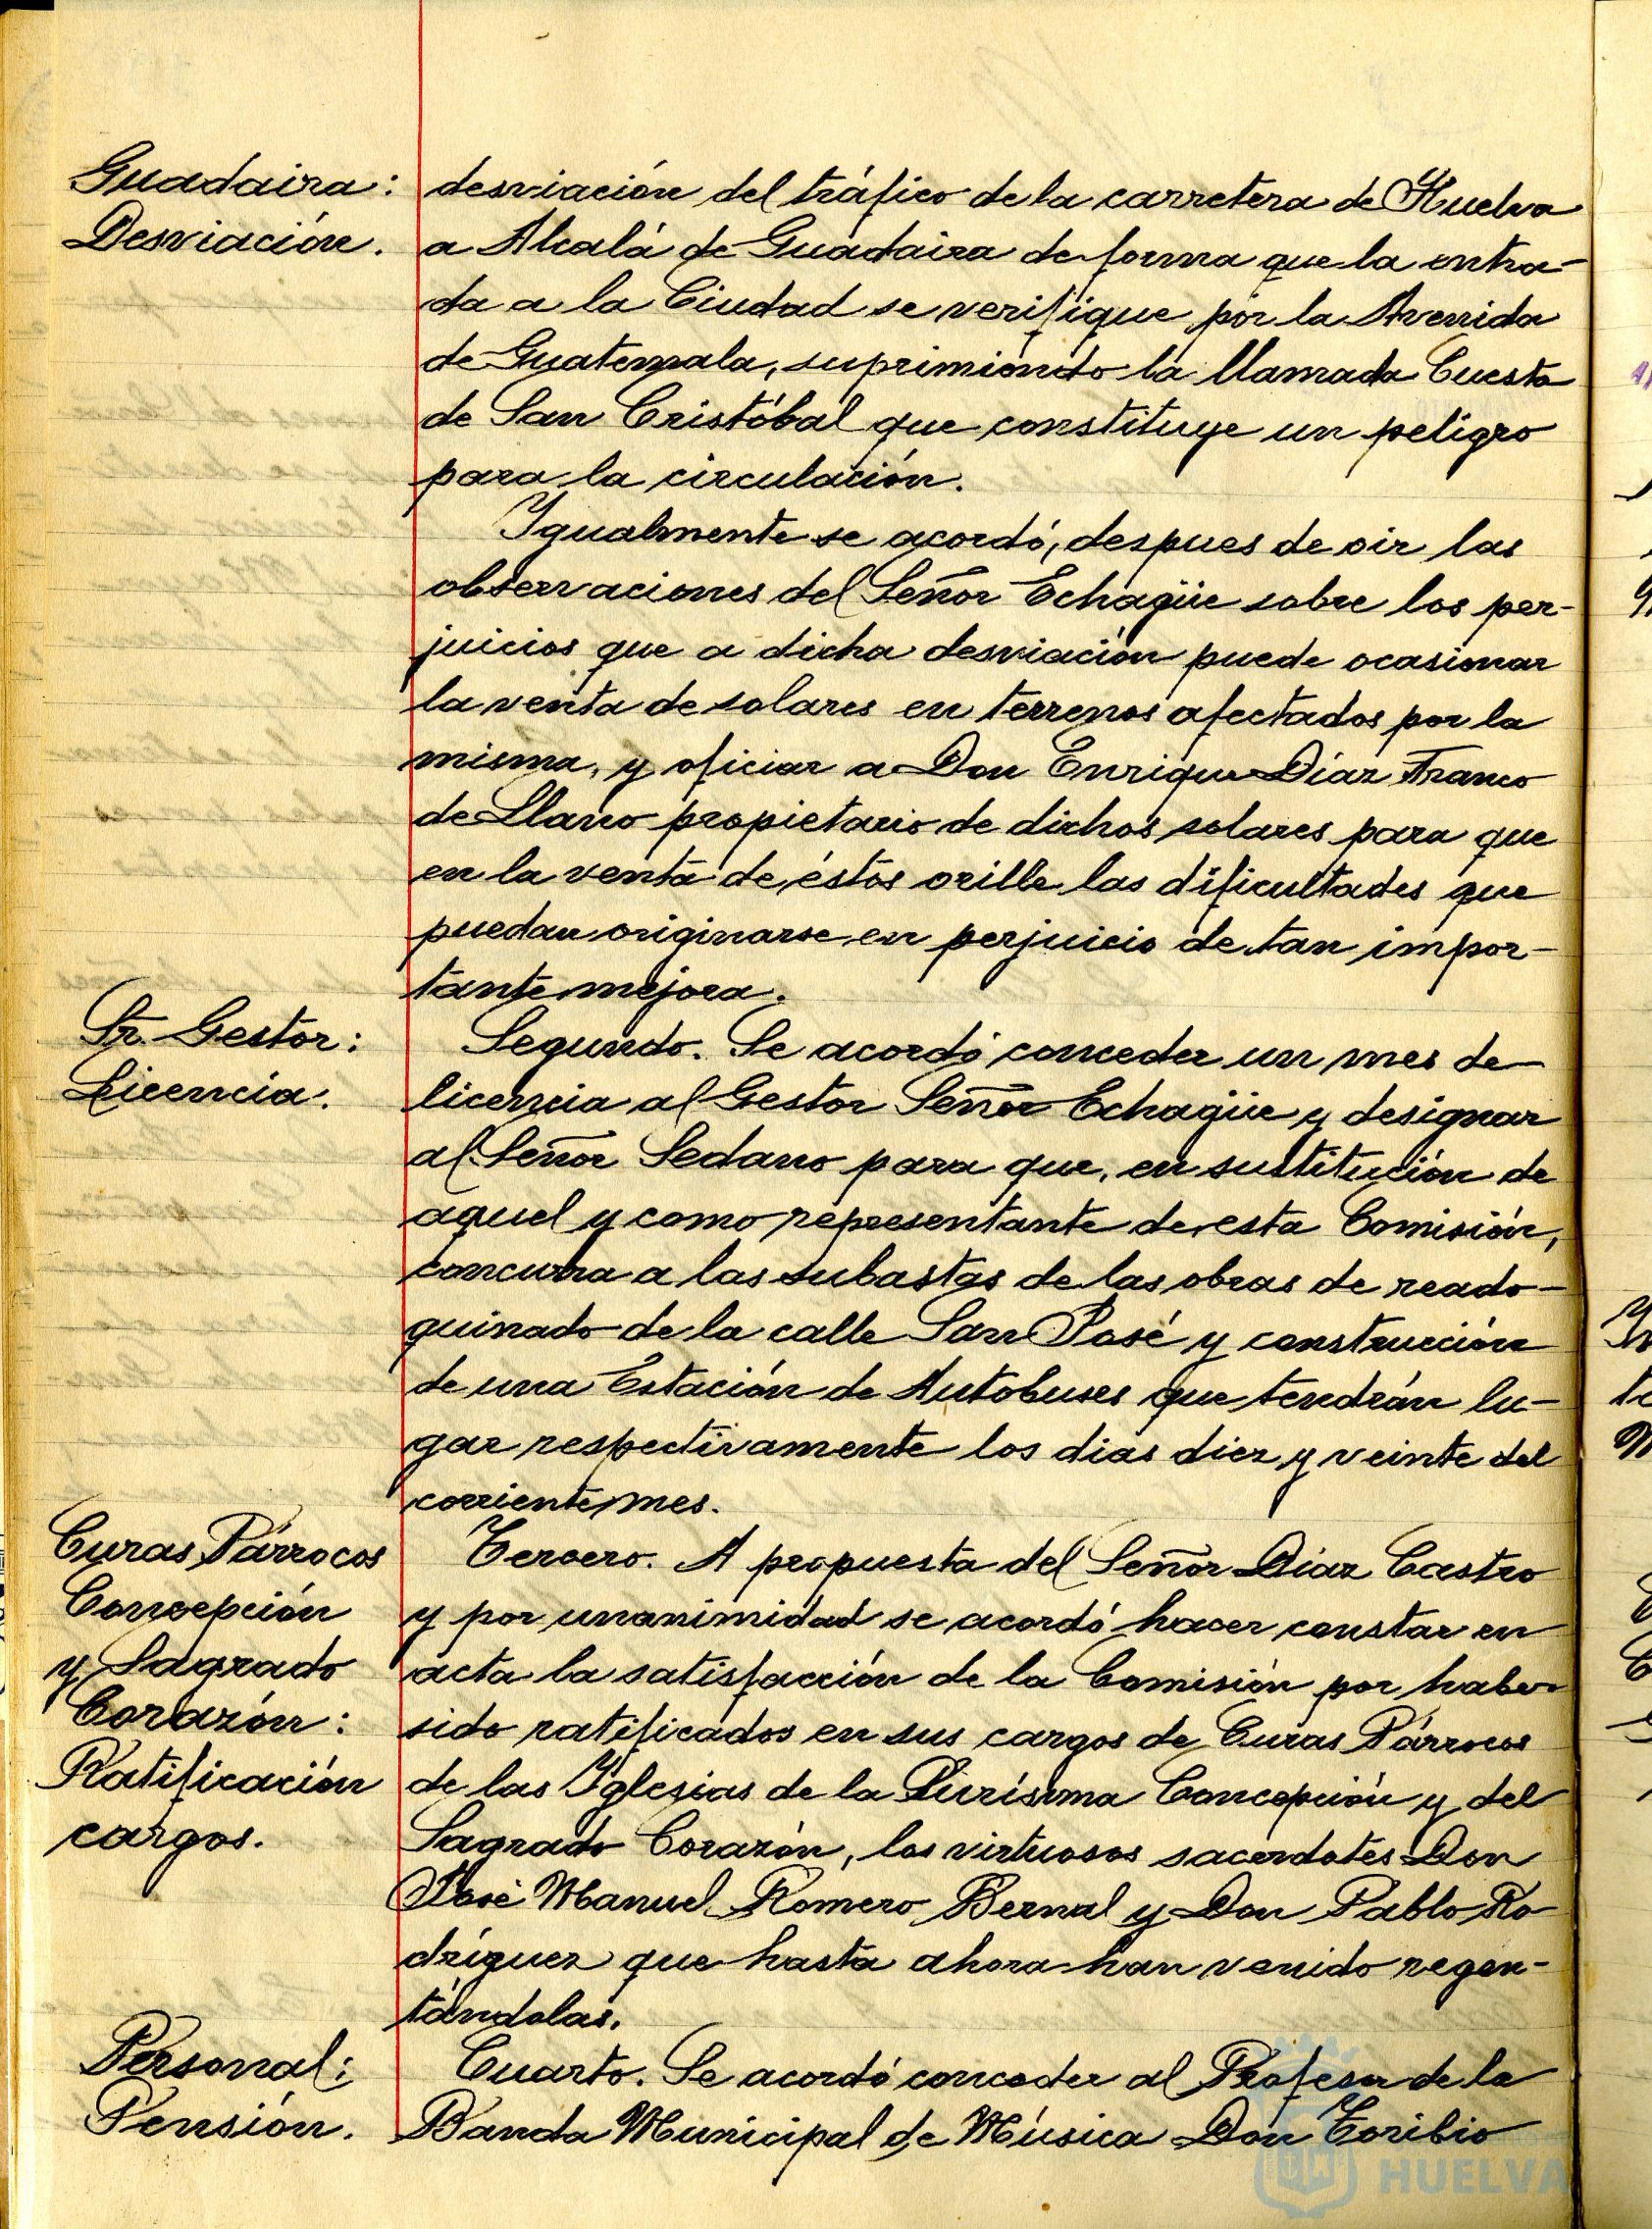 Guadaira:
Desviación.
desviación del tráfico de la carretera de Huelva
a Alcalá de Guadaira de forma que la entra-
da a la Ciudad se verifique por la Avenida
de Guatemala, suprimiendo la llamada Cuesta
de San Cristóbal que constituye un peligro
para la circulación.
Igualmente se acordó, despues de oir las
observaciones del Señor Echagüe sobre los per-
juicios que a dicha desviación puede ocasionar
la venta de solares en terrenos afectados por la
misma, y oficiar a Don Enrique Díaz Franco
de Llano propietario de dichos solares para que
en la venta de éstos orille las dificultades que
puedan originarse en perjuicio de tan impor-
tante mejora.
Sr. Gestor:
Licencia.
Segundo. Se acordó conceder un mes de
licencia al Gestor Señor Echagüe y designar
al Señor Sedano para que, en sustitución de
aquel y como representante de esta Comisión,
concurra a las subastas de las obras de reado-
quinado de la calle San José y construcción
de una Estación de Autobuses que tendrán lu-
gar respectivamente los dias diez y veinte del
corriente mes.
Curas Párrocos
Concepción
y Sagrado
Corazón:
Ratificación
cargos.
Tercero. A propuesta del Señor Díaz Castro
y por unanimidad se acordó hacer constar en
acta la satisfacción de la Comisión por haber
sido ratificados en sus cargos de Curas Párrocos
de las Iglesias de la Purísima Concepción y del
Sagrado Corazón, los virtuosos sacerdotes Don
José Manuel Romero Bernal y Don Pablo Ro-
dríguez que hasta ahora han venido regen-
tándolas.
Personal:
Pensión.
Cuarto. Se acordó conceder al Profesor de la
Banda Municipal de Música Don Toribio
HUELVA